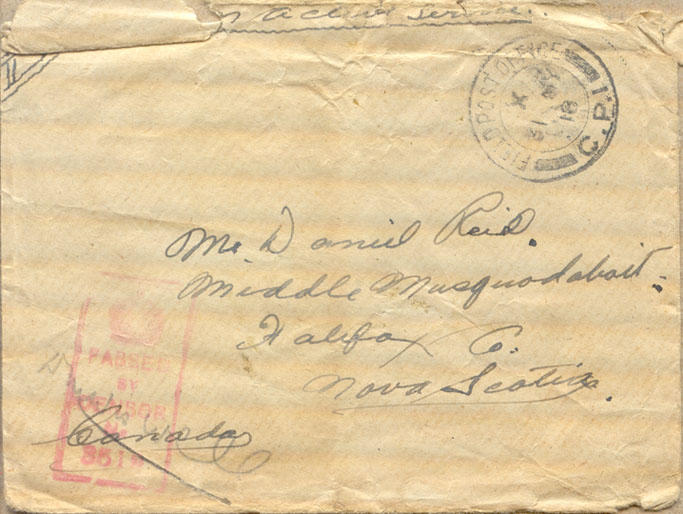 n Active Service.
FIELD POST OFFICE
C.P.1
X
31
18
Mr. Daniel Reid.
Middle Musquodoboit.
Halifax Co.
Nova Scotia.
Canada
PASSED
BY
CENSOR